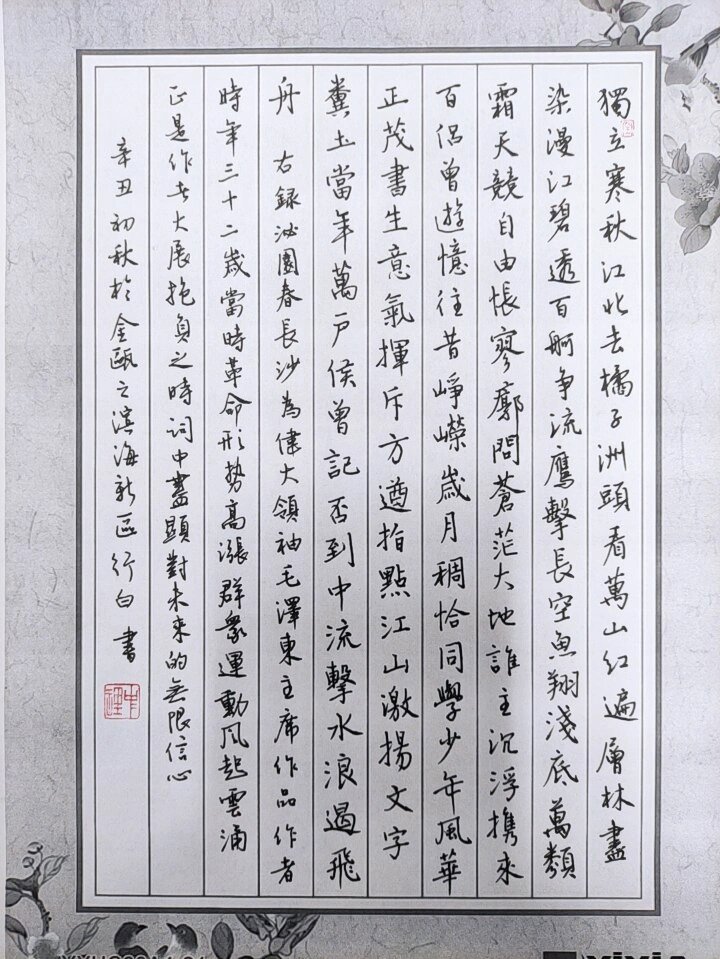 獨立寒秋江北去橘子洲頭看萬山紅遍層林盡
染漫江碧透百舸争流鷹擊長空魚翔淺底萬類
霜天競自由悵寥廓問蒼茫大地誰主沉浮携來
百侣曾遊憶往昔崢嶸歲月稠恰同學少年風華
正茂書生意氣揮斥方遒指點江山激揚文字
糞土當年萬户侯曾記否到中流擊水浪遏飛
舟 右録泌園春長沙為偉大領袖毛澤東主席作品作者
時年三十二歲當時革命形势高漲群衆運動风起雲涌
正是作者大展抱負之時词中盡顯對未來的無限信心
辛丑初秋於金甌之滨海新區行白書